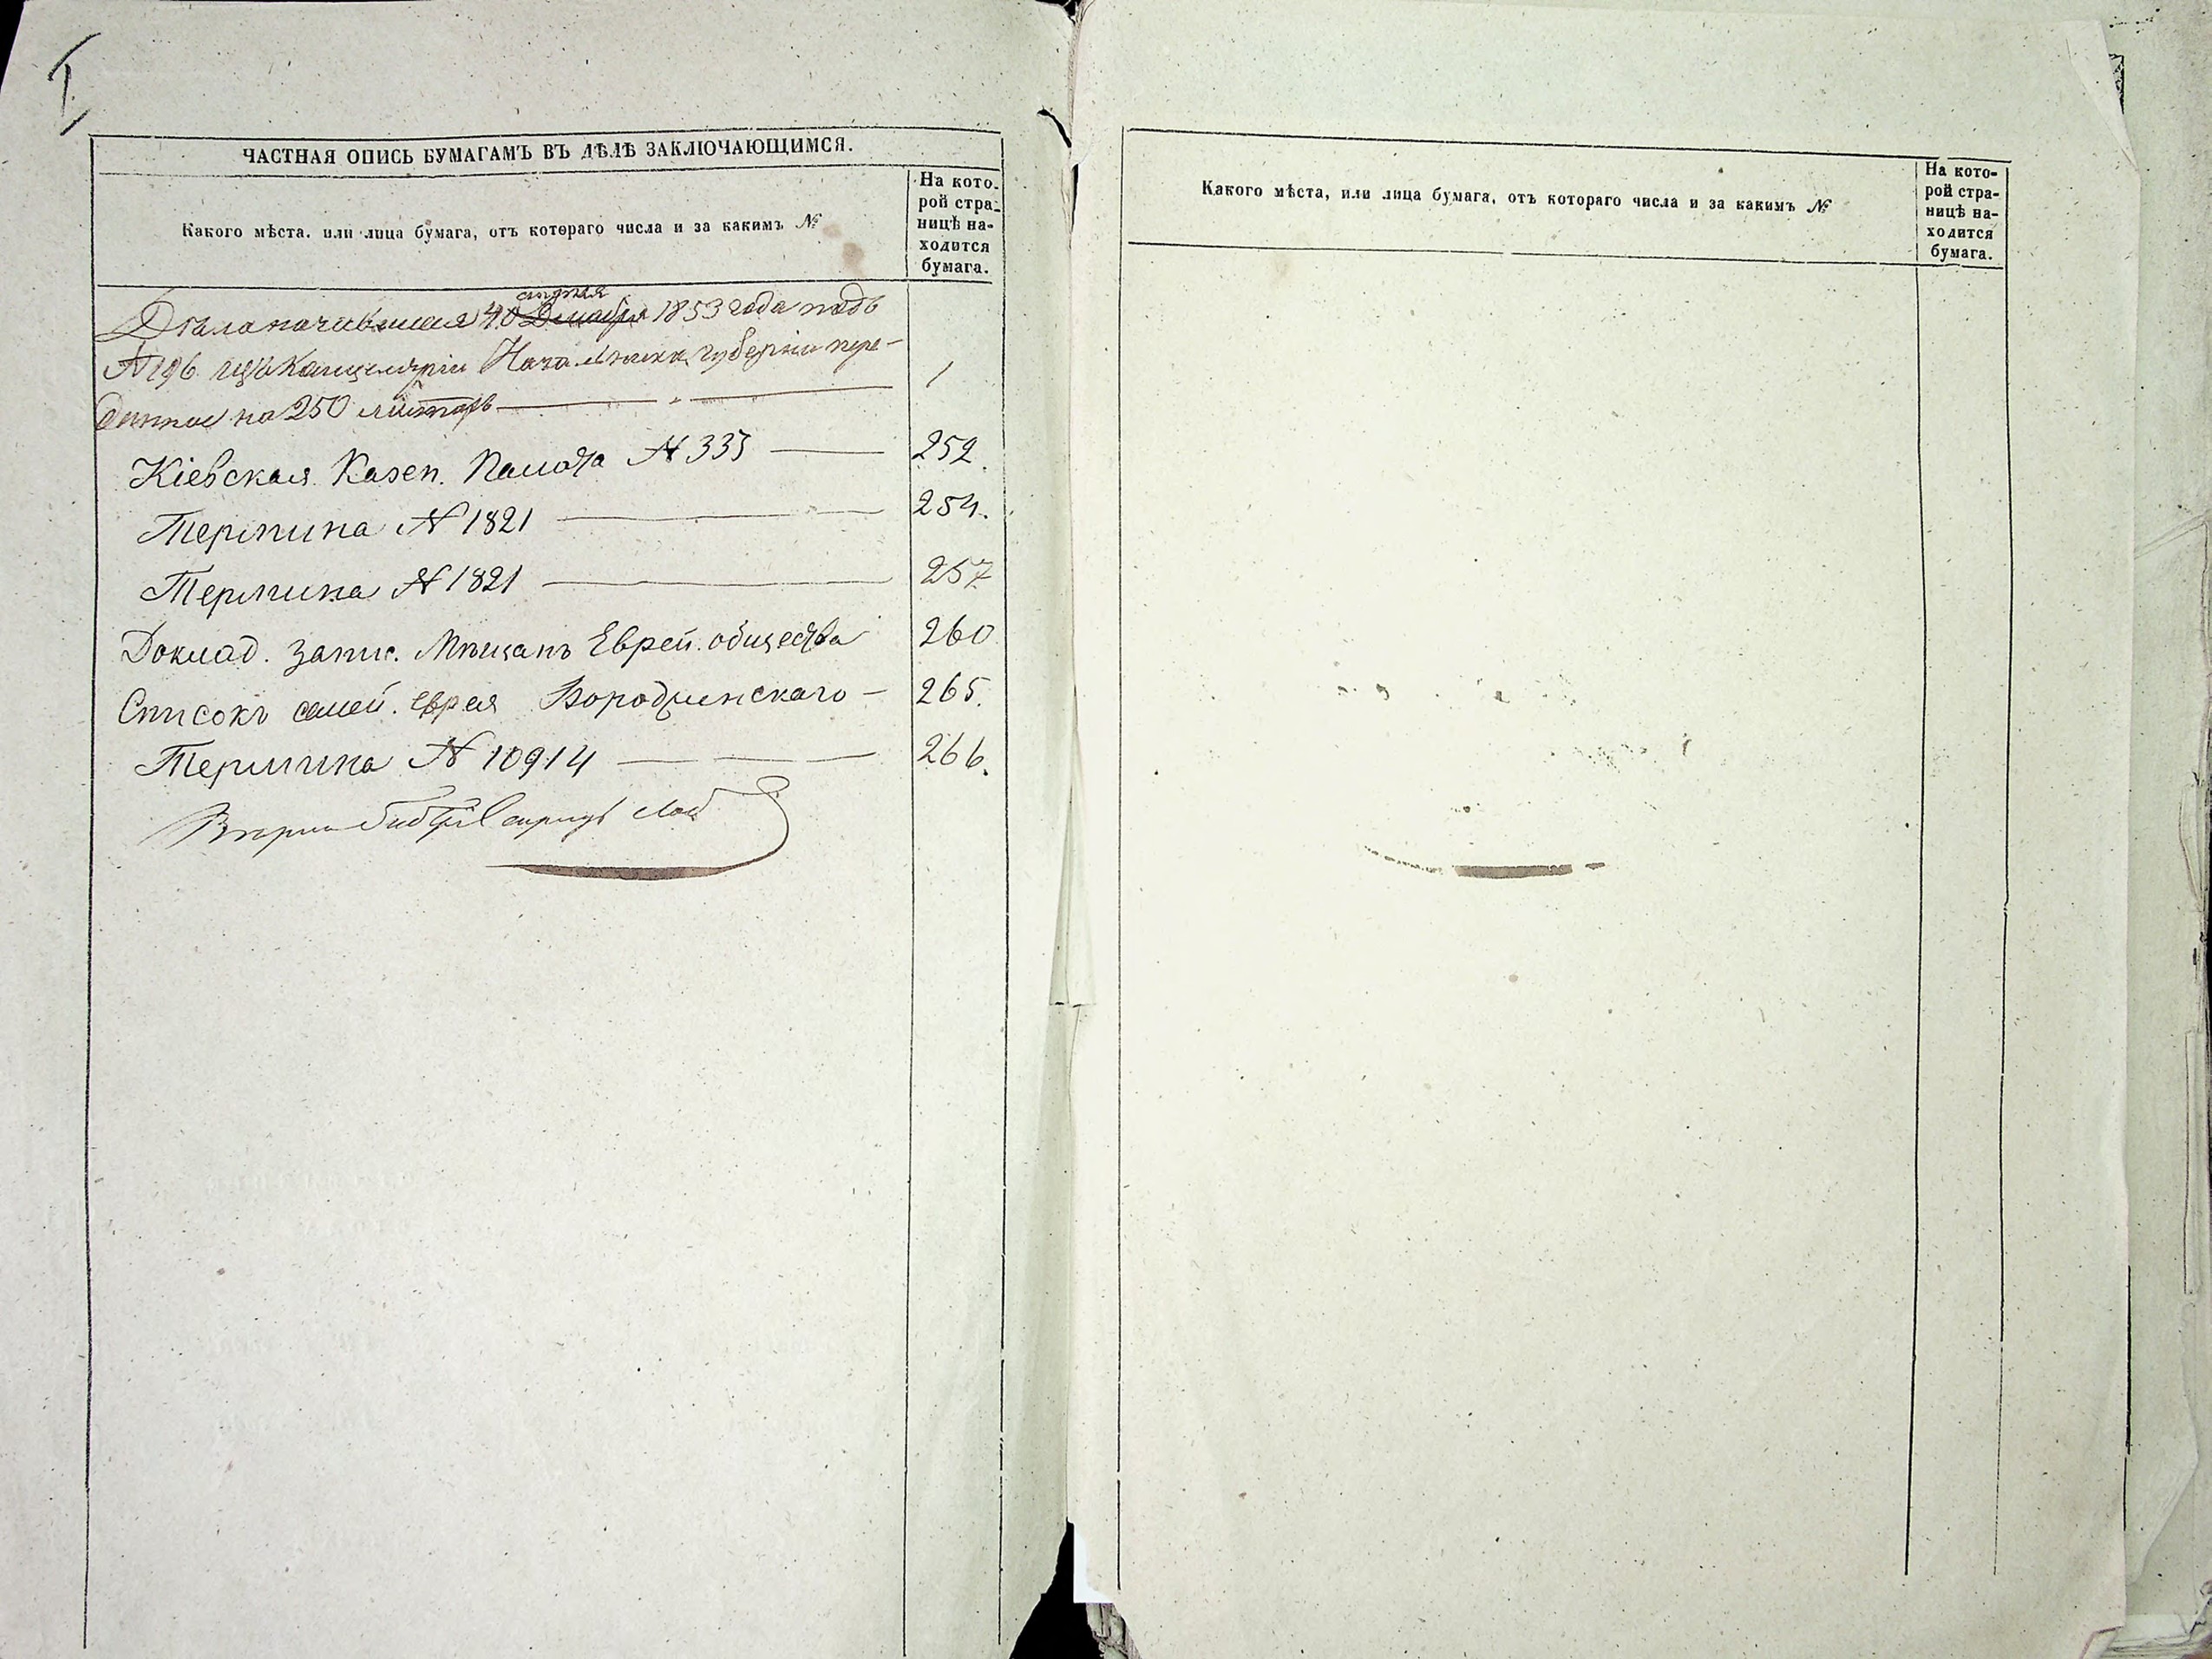 I
ЧАСТНАЯ ОПИСЬ БУМАГАМЪ ВЪ ДѢЛѢ ЗАКЛЮЧАЮЩИМСЯ.
Какого мѣста. или лица бумага, отъ котораго числа и за какимъ №
На кото-
рой стра-
ницѣ на-
ходится
бумага.
Дѣло начавшееся 1853 года подъ
№ 196 Канцеляріи Начальника губерніи пере-
данное на 250 листахъ 1
Кіевская Казен. Палата № 335 252.
Термина № 1821 254.
Термина № 1821 257
Доклад. запис. Мѣщанъ Еврей. общества 260
Списокъ семей. еврея Бородянскаго 265.
Термина № 10914 266.
Какого мѣста, или лица бумага, отъ котораго числа и за какимъ №
На кото-
рой стра-
ницѣ на-
ходится
бумага.